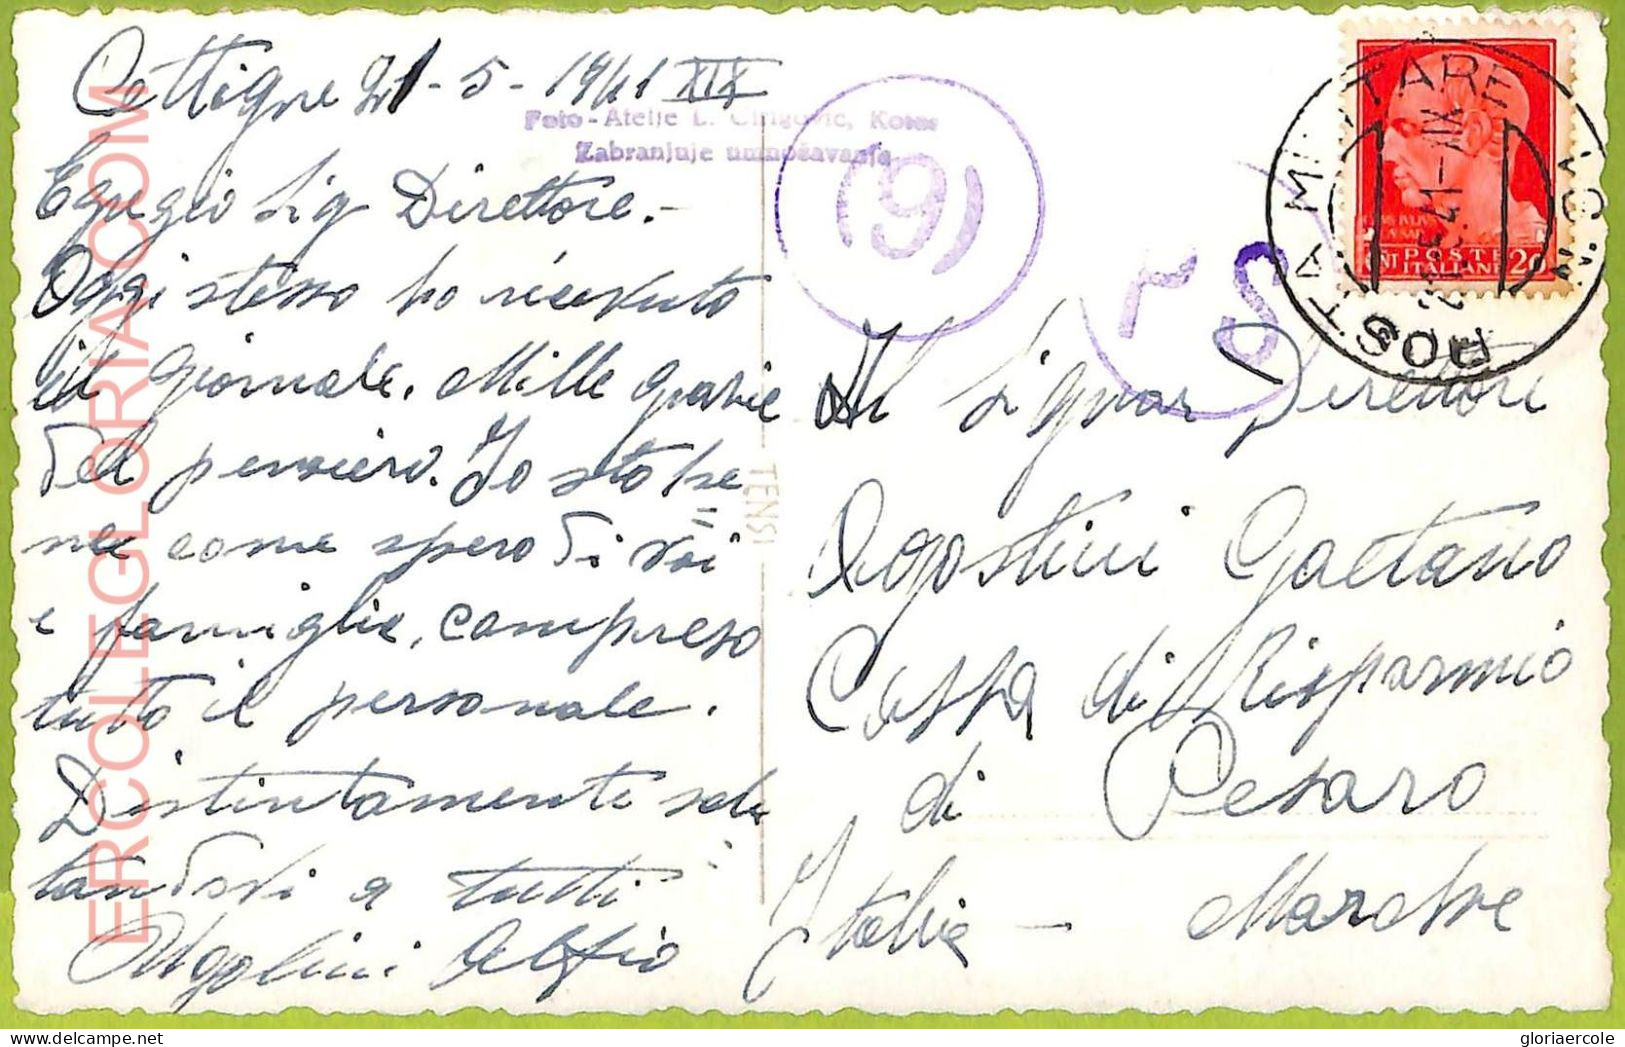 Cettigne 21-5-1941 XIX
Egregio Sig Direttore.-
Oggi stesso ho ricevuto
il giornale. Mille grazie
del pensiero. Io sto be
ne come spero di voi
e famiglie, compreso
tutto il personale.
Distintamente salu
tandovi a tutti
Ugolini Alfio
Foto-Atelje L. Kotor
Zabranjuje umnožavanje
(9)
TENSI
POSTA MILITARE N.
POSTE
ITALIANE
Al Signor Direttore
Agostini Gaetano
Cassa di Risparmio
di Pesaro
Italia - Marche
ERCOLEGLORIA.COM
gloriaercole